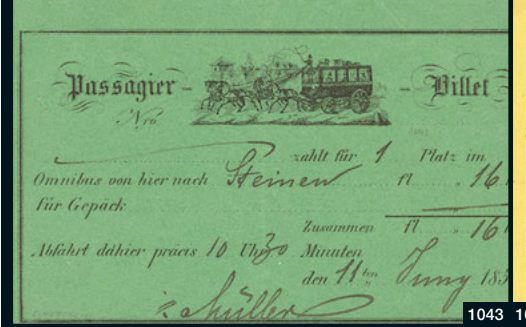 Passagier - - Billet
Nro
zahlt für 1 Platz im
Omnibus von hier nach Steinen fl " 16
für Gepäck
Zusammen fl " 16
Abfahrt dahier präcis 10 Uhr 30 Minuten
den 11ten Juny 185
Müller
1043